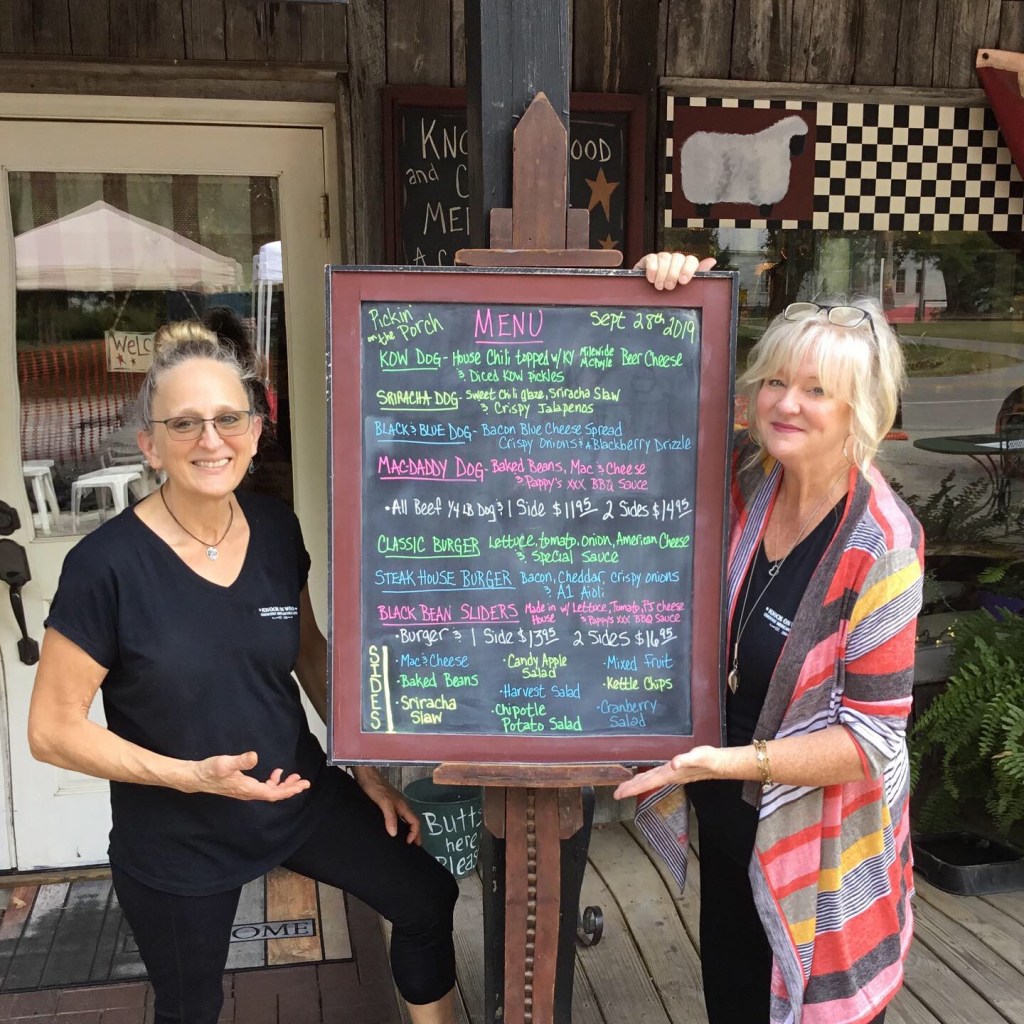 KNO OOD
and C
MEN
WELC
Pickin on the Porch
MENU
Sept 28th 2019
KOW DOG - House Chili topped w/ KY Milewide McPoyle Beer Cheese
& Diced KOW Pickles
SRIRACHA DOG - Sweet Chili Glaze, Sriracha Slaw
& Crispy Jalapenos
BLACK & BLUE DOG - Bacon Blue Cheese Spread
Crispy Onions & A Blackberry Drizzle
MAC-DADDY DOG - Baked Beans, Mac & Cheese
& Pappy's XXX BBQ Sauce
• All Beef 1/4 LB Dog & 1 Side $11.95 2 Sides $14.95
CLASSIC BURGER Lettuce, tomato, onion, American Cheese
& Special Sauce
STEAK HOUSE BURGER Bacon, Cheddar, crispy onions
& A1 Aioli
BLACK BEAN SLIDERS Made in House w/ Lettuce, Tomato, PJ's cheese
& Pappy's XXX BBQ Sauce
• Burger & 1 Side $13.95 2 Sides $16.95
SIDES
• Mac & Cheese • Candy Apple Salad • Mixed Fruit
• Baked Beans • Harvest Salad • Kettle Chips
• Sriracha Slaw • Chipotle Potato Salad • Cranberry Salad
KNOCK ON WOOD
KNOCK ON WOO
Butts
here
Please
OME